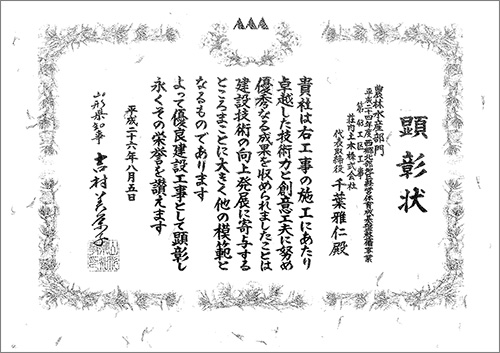 顕彰状
農林水産部門
平成二十四年度西郷北部地区経営体育成基盤整備事業
第二工区工事
荘内土木株式会社
代表取締役 千葉雅仁殿
貴社は右工事の施工にあたり
卓越した技術力と創意工夫に努め
優秀なる成果を収められましたことは
建設技術の向上発展に寄与する
ところまことに大きく他の模範と
なるものであります
よって優良建設工事として顕彰し
永くその栄誉を讃えます
平成二十六年八月五日
山形県知事 吉村美栄子